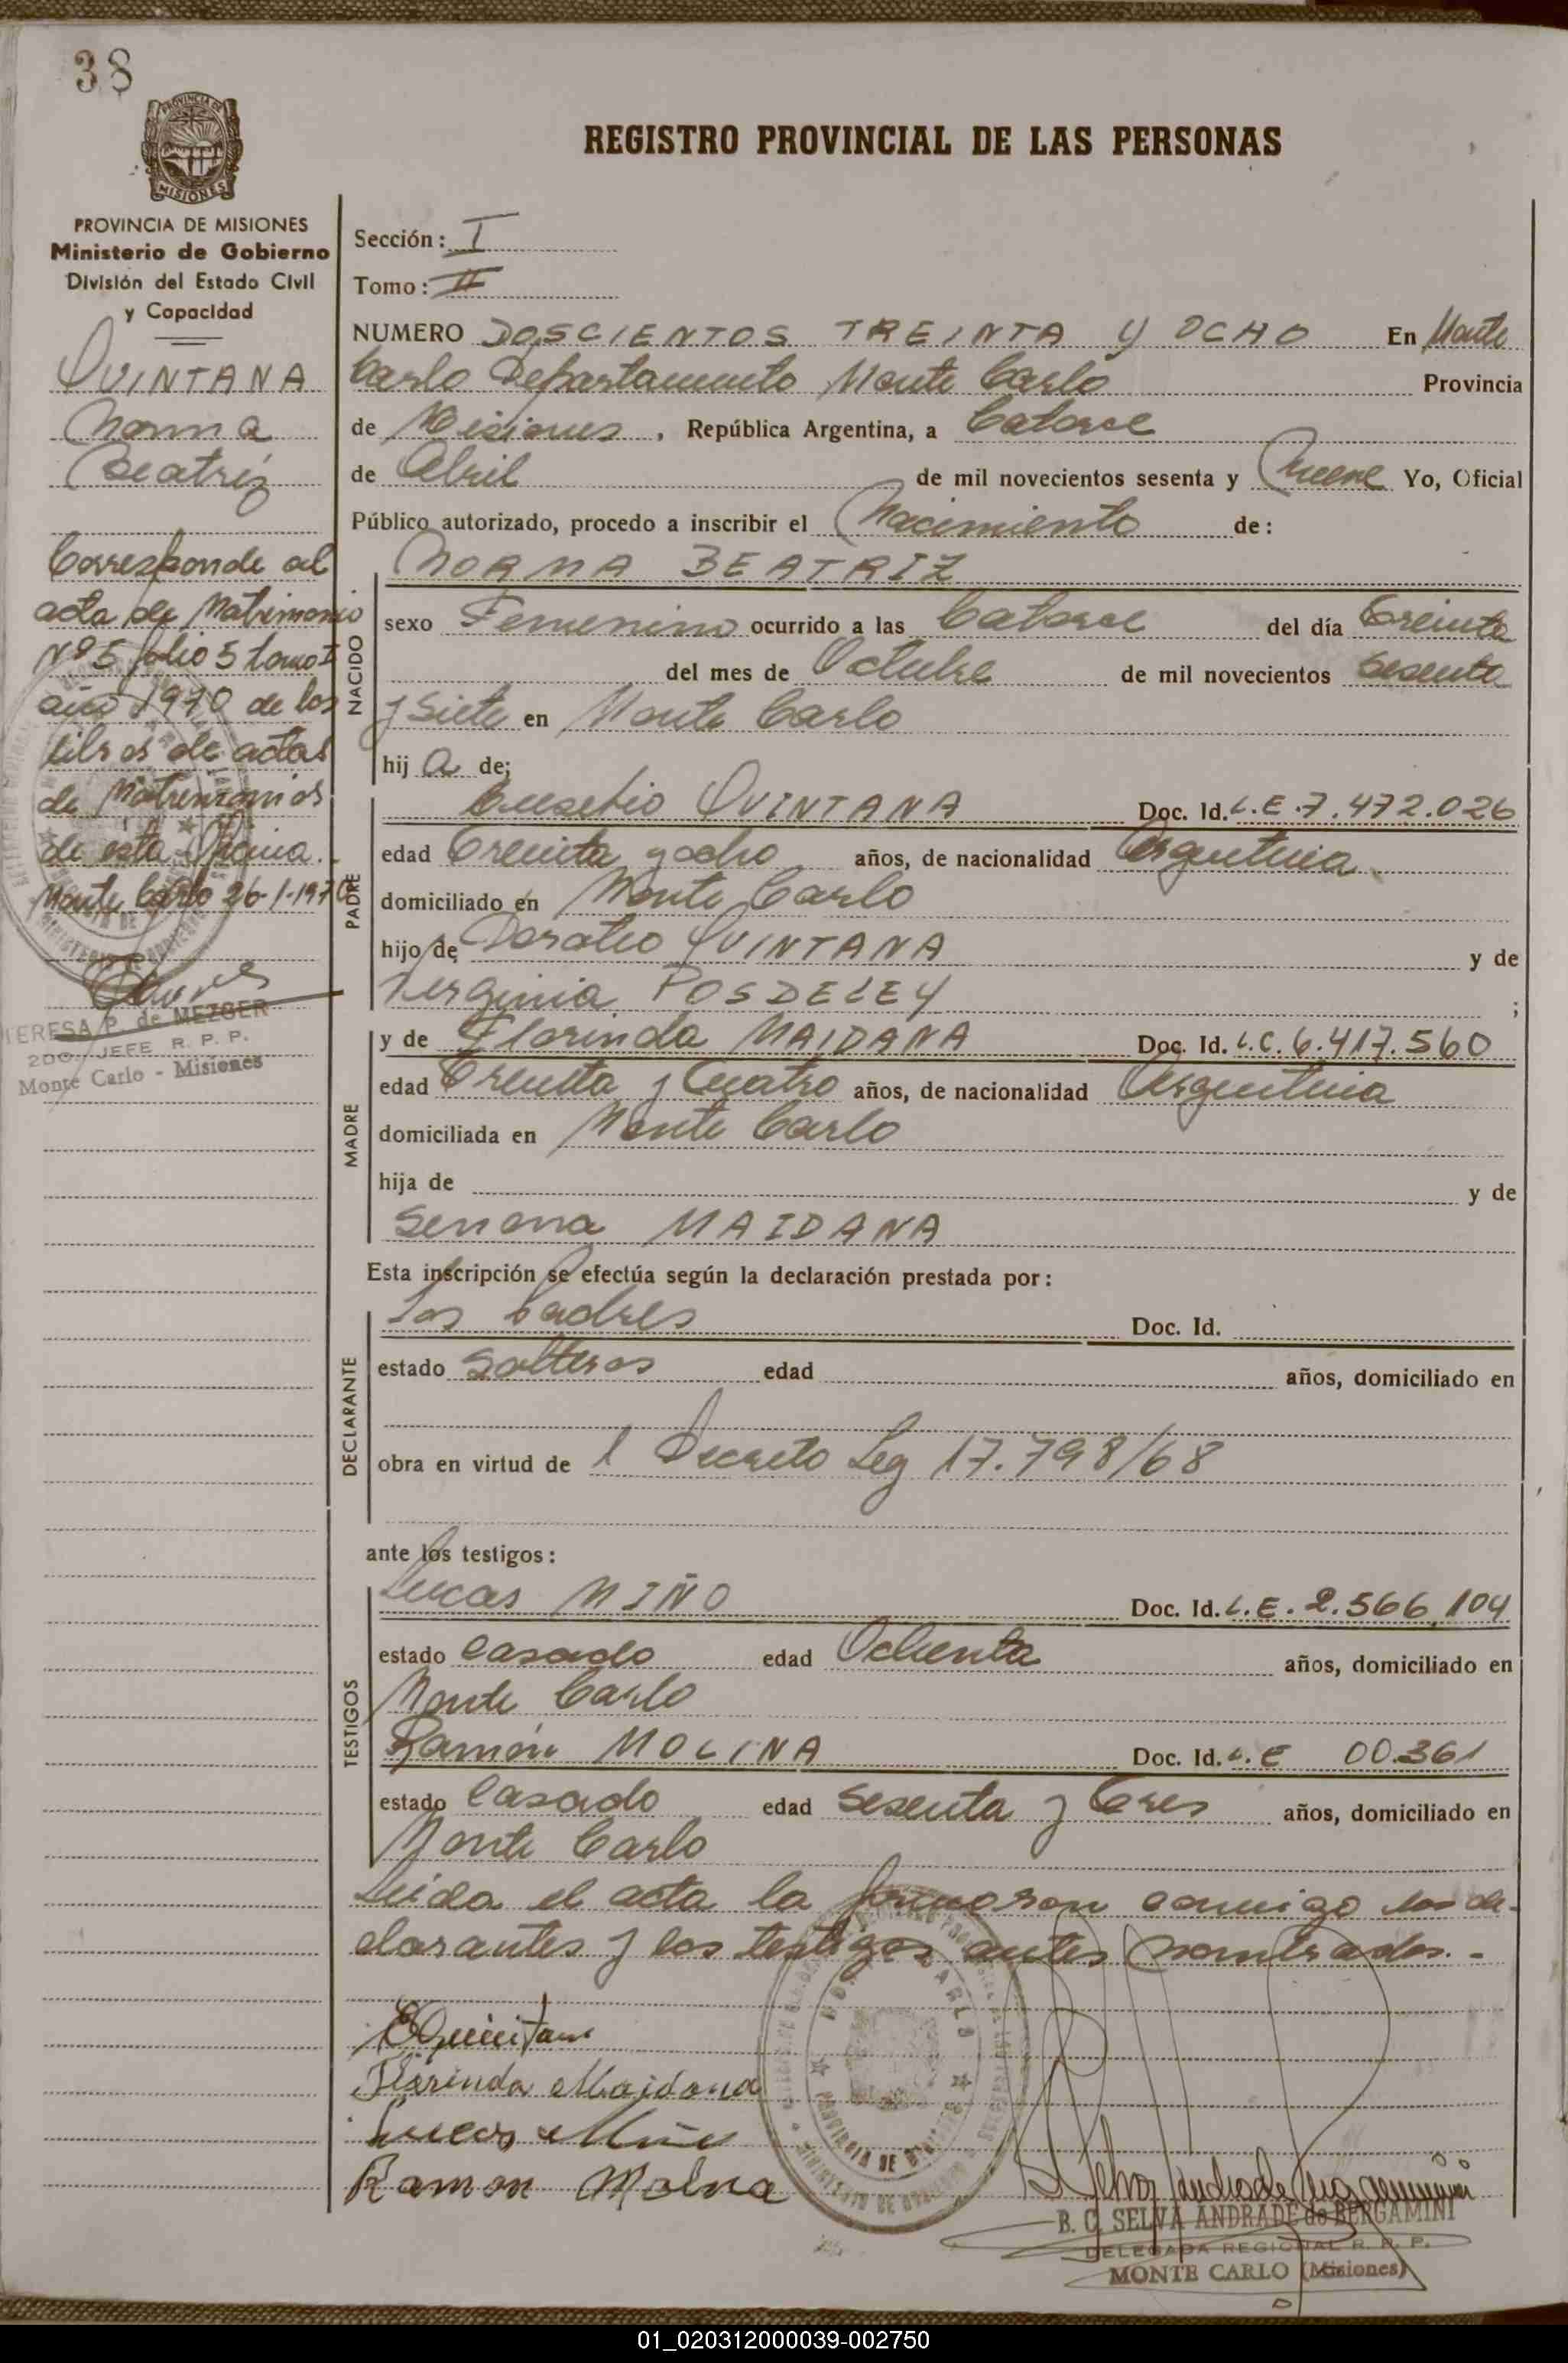 38
PROVINCIA DE
MISIONES
REGISTRO PROVINCIAL DE LAS PERSONAS
PROVINCIA DE MISIONES
Ministerio de Gobierno
División del Estado Civil
y Capacidad
QUINTANA
Norma
Beatriz
Corresponde al
acta de Matrimonio
Nº 5 folio 5 tomo I
año 1970 de los
libros de actas
de Matrimonios
de esta Oficina.
Monte Carlo 26-1-1970
TERESA P. de MEZGER
2DO. JEFE R. P. P.
Monte Carlo - Misiones
Sección: I
Tomo: II
NUMERO DOSCIENTOS TREINTA Y OCHO En Monte
Carlo Departamento Monte Carlo Provincia
de Misiones, República Argentina, a Catorce
de Abril de mil novecientos sesenta y Nueve Yo, Oficial
Público autorizado, procedo a inscribir el Nacimiento de:
NORMA BEATRIZ
NACIDO
sexo Femenino ocurrido a las Catorce del día Treinta
del mes de Octubre de mil novecientos sesenta
y Siete en Monte Carlo
hija de;
PADRE
Eusebio QUINTANA Doc. Id. L.E. 7.472.026
edad Treinta y ocho años, de nacionalidad Argentina
domiciliado en Monte Carlo
hijo de Doroteo QUINTANA y de
Verginia POSDELEY ;
MADRE
y de Florinda MAIDANA Doc. Id. L.C. 6.417.560
edad Treinta y Cuatro años, de nacionalidad Argentina
domiciliada en Monte Carlo
hija de y de
MAIDANA
Esta inscripción se efectúa según la declaración prestada por:
DECLARANTE
Los Padres Doc. Id.
estado Solteros edad años, domiciliado en
obra en virtud de l Decreto Ley 17.798/68
ante los testigos:
TESTIGOS
Lucas MIÑO Doc. Id. L.E. 2.566.104
estado Casado edad Ochenta años, domiciliado en
Monte Carlo
Ramón MOLINA Doc. Id. L.E 00.361
estado Casado edad Sesenta y Tres años, domiciliado en
Monte Carlo
Leida el acta la firmaron conmigo los de-
clarantes y los testigos antes nombrados.-
EQuintana
Florinda Maidana
Lucas Miño
Ramon Molina
B. C. SELVA ANDRADE de BERGAMINI
DELEGADA REGIONAL R. P. P.
MONTE CARLO (Misiones)
01_020312000039-002750